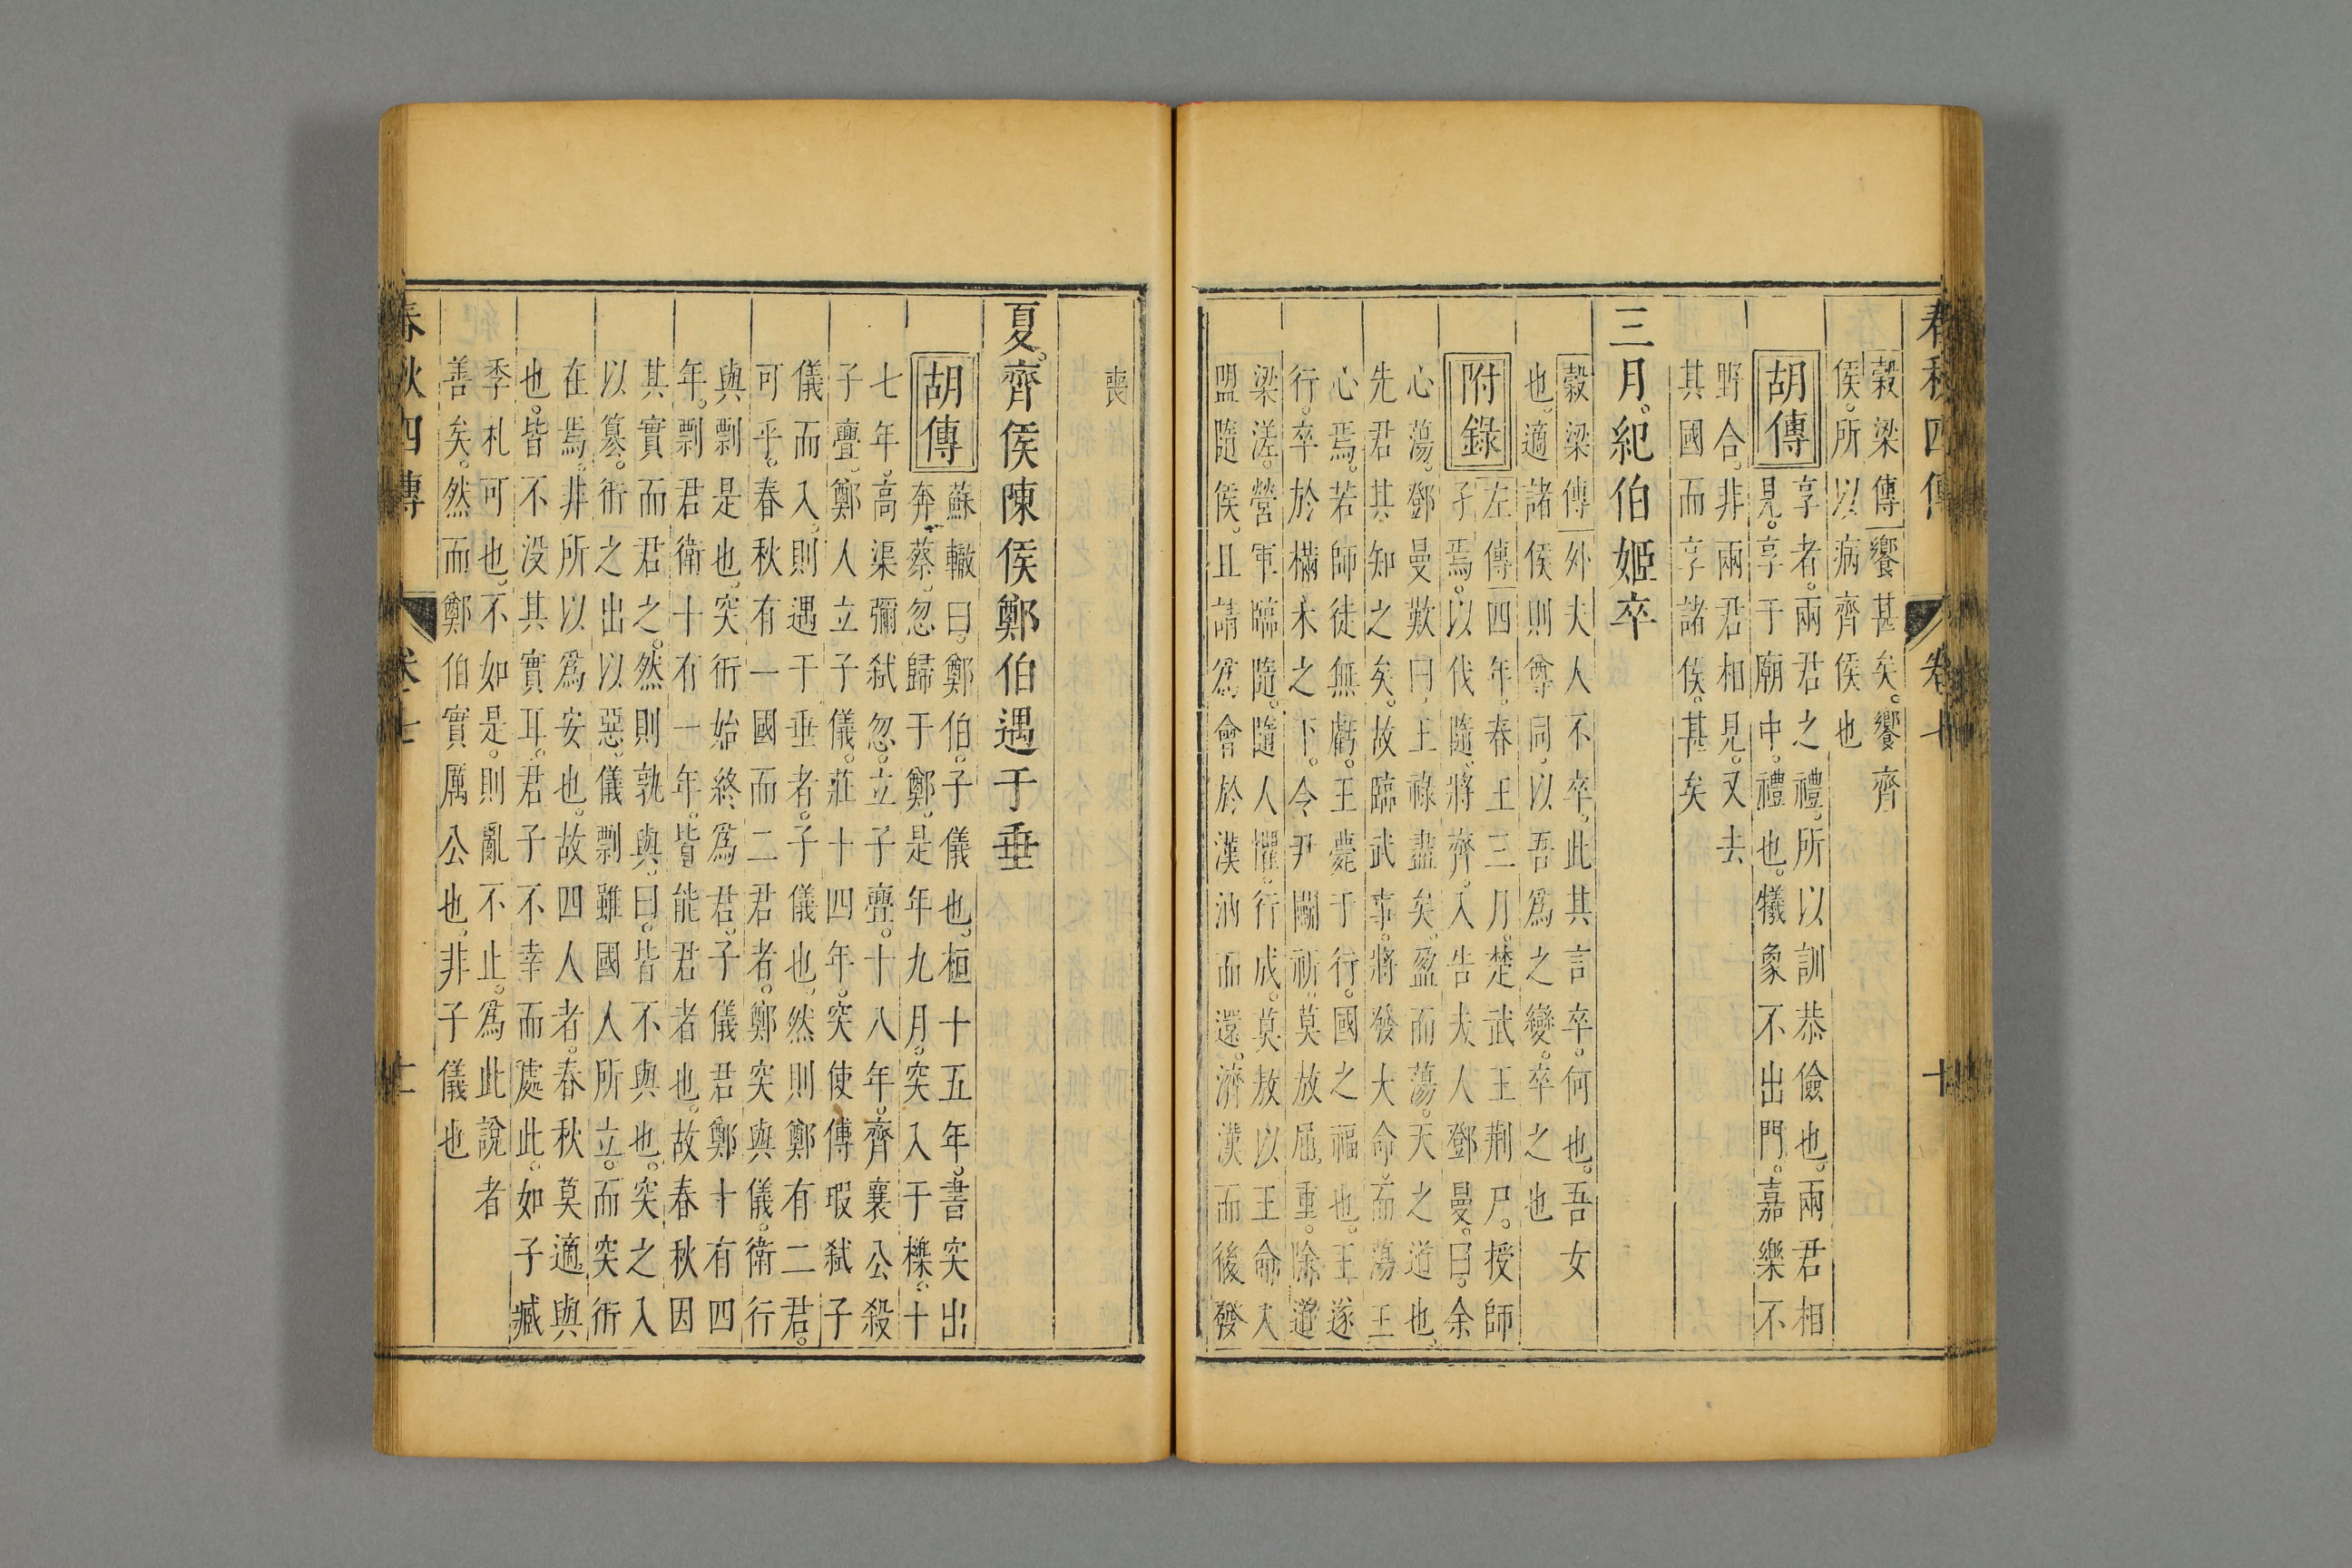 春秋四傳 卷七 十
穀梁傳饗甚矣。饗齊
侯。所以病齊侯也
胡傳
享者。兩君之禮。所以訓恭儉也。兩君相
見。享于廟中。禮也。犧象不出門。嘉樂不
野合。非兩君相見。又去
其國而享諸侯。甚矣
三月。紀伯姬卒
穀梁傳外夫人不卒。此其言卒。何也。吾女
也。適諸侯則尊同。以吾爲之變。卒之也
附錄
左傳四年。春王三月。楚武王荆尸。授師
孑焉。以伐隨。將齊。入告夫人鄧曼。曰。余
心蕩。鄧曼歎曰。王祿盡矣。盈而蕩。天之道也
先君其知之矣。故臨武事。將發大命。而蕩王
心焉。若師徒無虧。王薨于行。國之福也。王遂
行。卒於樠木之下。令尹鬭祈。莫敖屈重。除道
梁溠。營軍臨隨。隨人懼。行成。莫敖以王命入
盟隨侯。且請爲會於漢汭而還。濟漢而後發
喪
夏。齊侯陳侯鄭伯遇于垂
胡傳
蘇轍曰。鄭伯。子儀也。桓十五年。書突出
奔蔡。忽歸于鄭。是年九月。突入于櫟。十
七年。高渠彌弒忽。立子亹。十八年。齊襄公殺
子亹。鄭人立子儀。莊十四年。突使傅瑕弒子
儀而入。則遇于垂者。子儀也。然則鄭有二君。
可乎。春秋有一國而二君者。鄭突與儀。衛衎
與剽是也。突衎始終爲君。子儀君鄭十有四
年。剽君衛十有一年。皆能君者也。故春秋因
其實而君之。然則孰與。曰。皆不與也。突之入
以篡。衎之出以惡。儀剽雖國人所立。而突衎
在焉。非所以爲安也。故四人者。春秋莫適與
也。皆不没其實耳。君子不幸而處此。如子臧
季札可也。不如是。則亂不止。爲此說者
善矣。然而鄭伯實厲公也。非子儀也
春秋四傳 卷七 十二